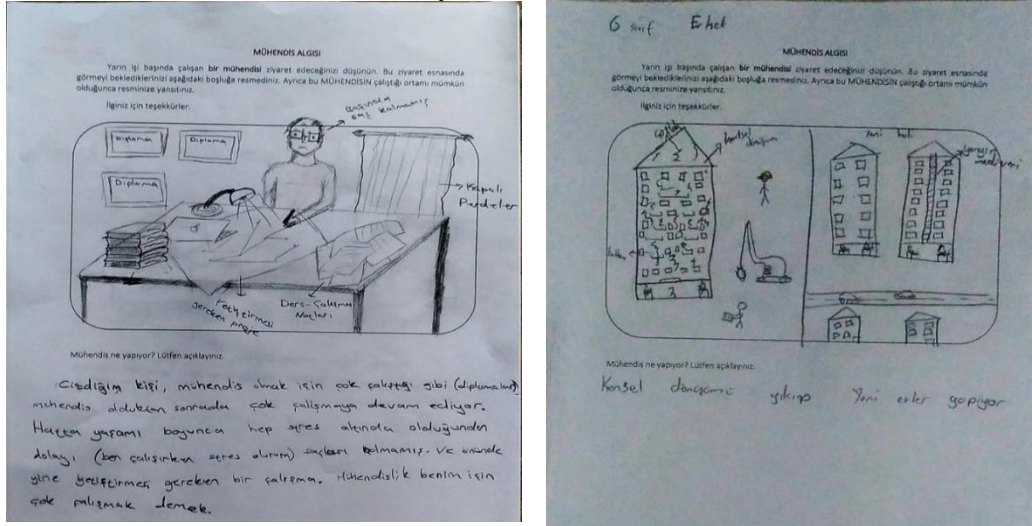 MÜHENDİS ALGISI
Yarın işi başında çalışan bir mühendisi ziyaret edeceğinizi düşünün. Bu ziyaret esnasında
görmeyi beklediklerinizi aşağıdaki boşluğa resmediniz. Ayrıca bu MÜHENDİSİN çalıştığı ortamı mümkün
olduğunca resminize yansıtınız.
İlginiz için teşekkürler.
Başında
saç kalmamış
Diploma
Diploma
Diploma
Kapalı
Perdeler
Yetiştirmesi
gereken proje
Ders-Çalışma
Notları
Mühendis ne yapıyor? Lütfen açıklayınız.
Çizdiğim kişi, mühendis olmak için çok çalıştığı gibi (diplomalar)
mühendis olduktan sonrada çok çalışmaya devam ediyor.
Hatta yaşamı boyunca hep stres altında olduğundan
dolayı (ben çalışırken stres olurum) saçları kalmamış. Ve önünde
yine yetiştirmesi gereken bir çalışma. Mühendislik benim için
çok çalışmak demek.
6 sınıf Erkek
MÜHENDİS ALGISI
Yarın işi başında çalışan bir mühendisi ziyaret edeceğinizi düşünün. Bu ziyaret esnasında
görmeyi beklediklerinizi aşağıdaki boşluğa resmediniz. Ayrıca bu MÜHENDİSİN çalıştığı ortamı mümkün
olduğunca resminize yansıtınız.
İlginiz için teşekkürler.
kentsel
dönüşüm
yeni hali
yangın
merdiveni
Mühendis ne yapıyor? Lütfen açıklayınız.
yıkıp Yeni evler yapıyor